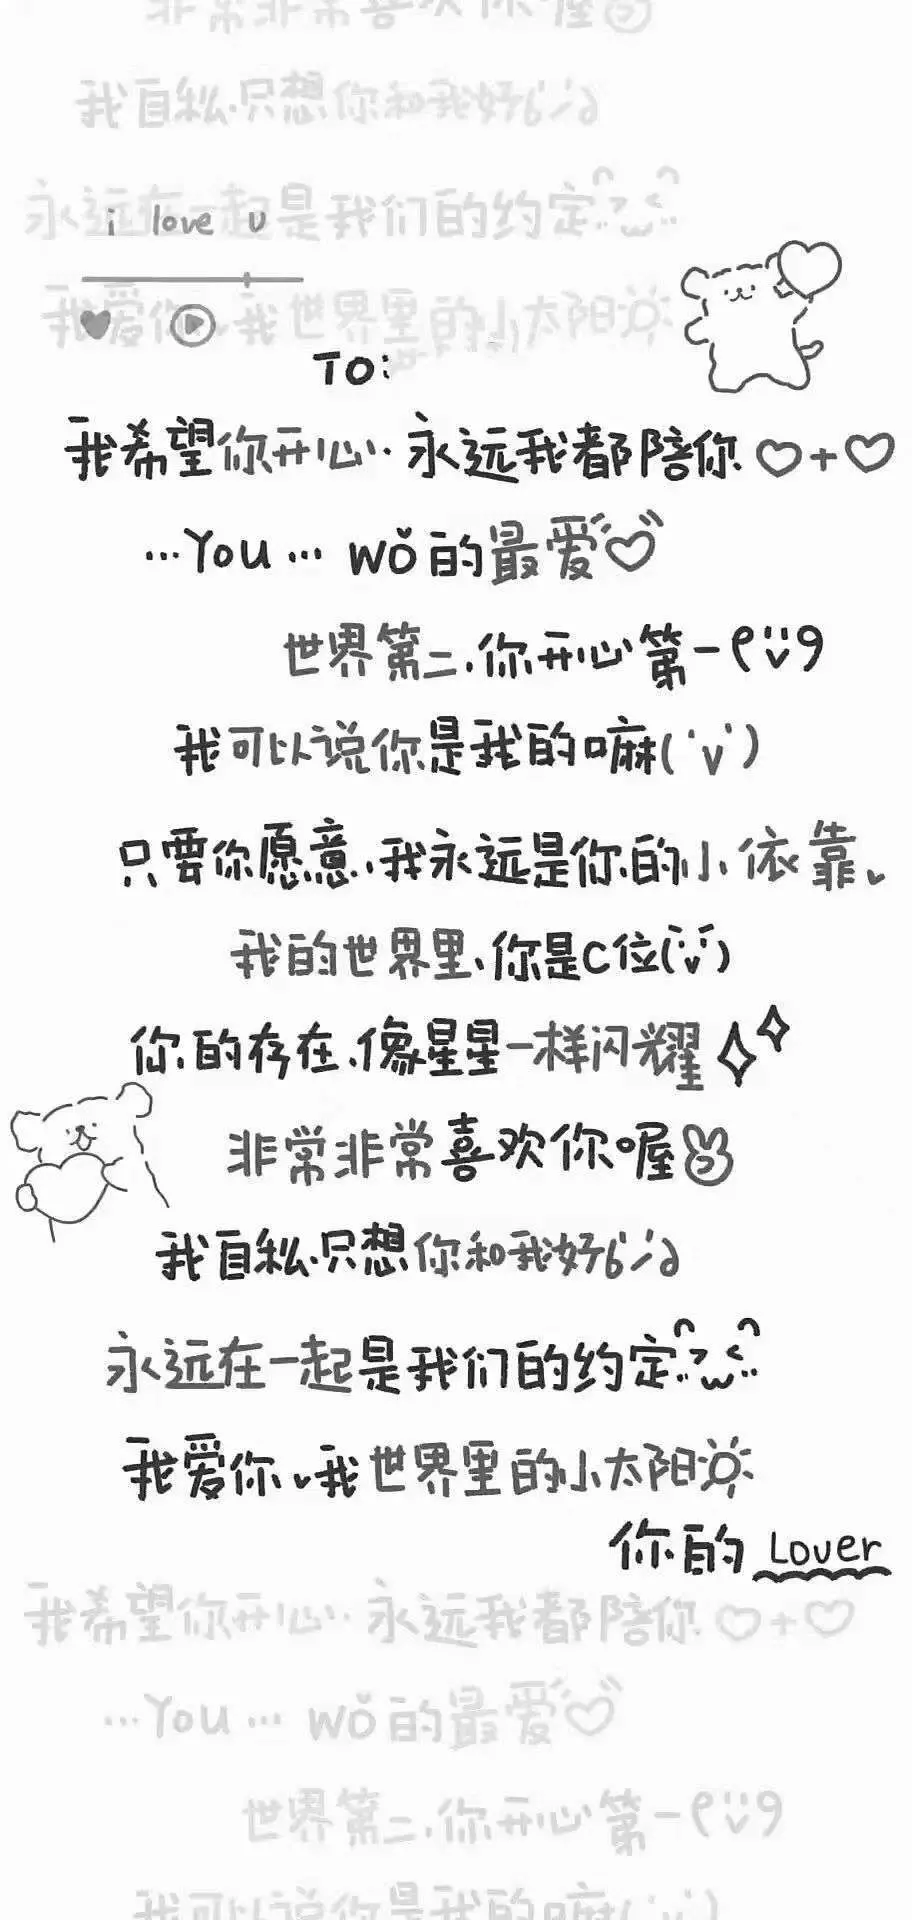 非常非常喜欢你喔
我自私.只想你和我好
永远在一起是我们的约定
i love u
我爱你、我世界里的小太阳
To:
我希望你开心..永远我都陪你♡+♡
...You... wǒ的最爱♡
世界第二.你开心第一
我可以说你是我的嘛(˙v˙)
只要你愿意、我永远是你的小依靠、
我的世界里、你是C位
你的存在、像星星一样闪耀
非常非常喜欢你喔
我自私.只想你和我好
永远在一起是我们的约定
我爱你、我世界里的小太阳
你的 Lover
我希望你开心..永远我都陪你♡+♡
...You... wǒ的最爱♡
世界第二.你开心第一
我可以说你是我的嘛(˙v˙)